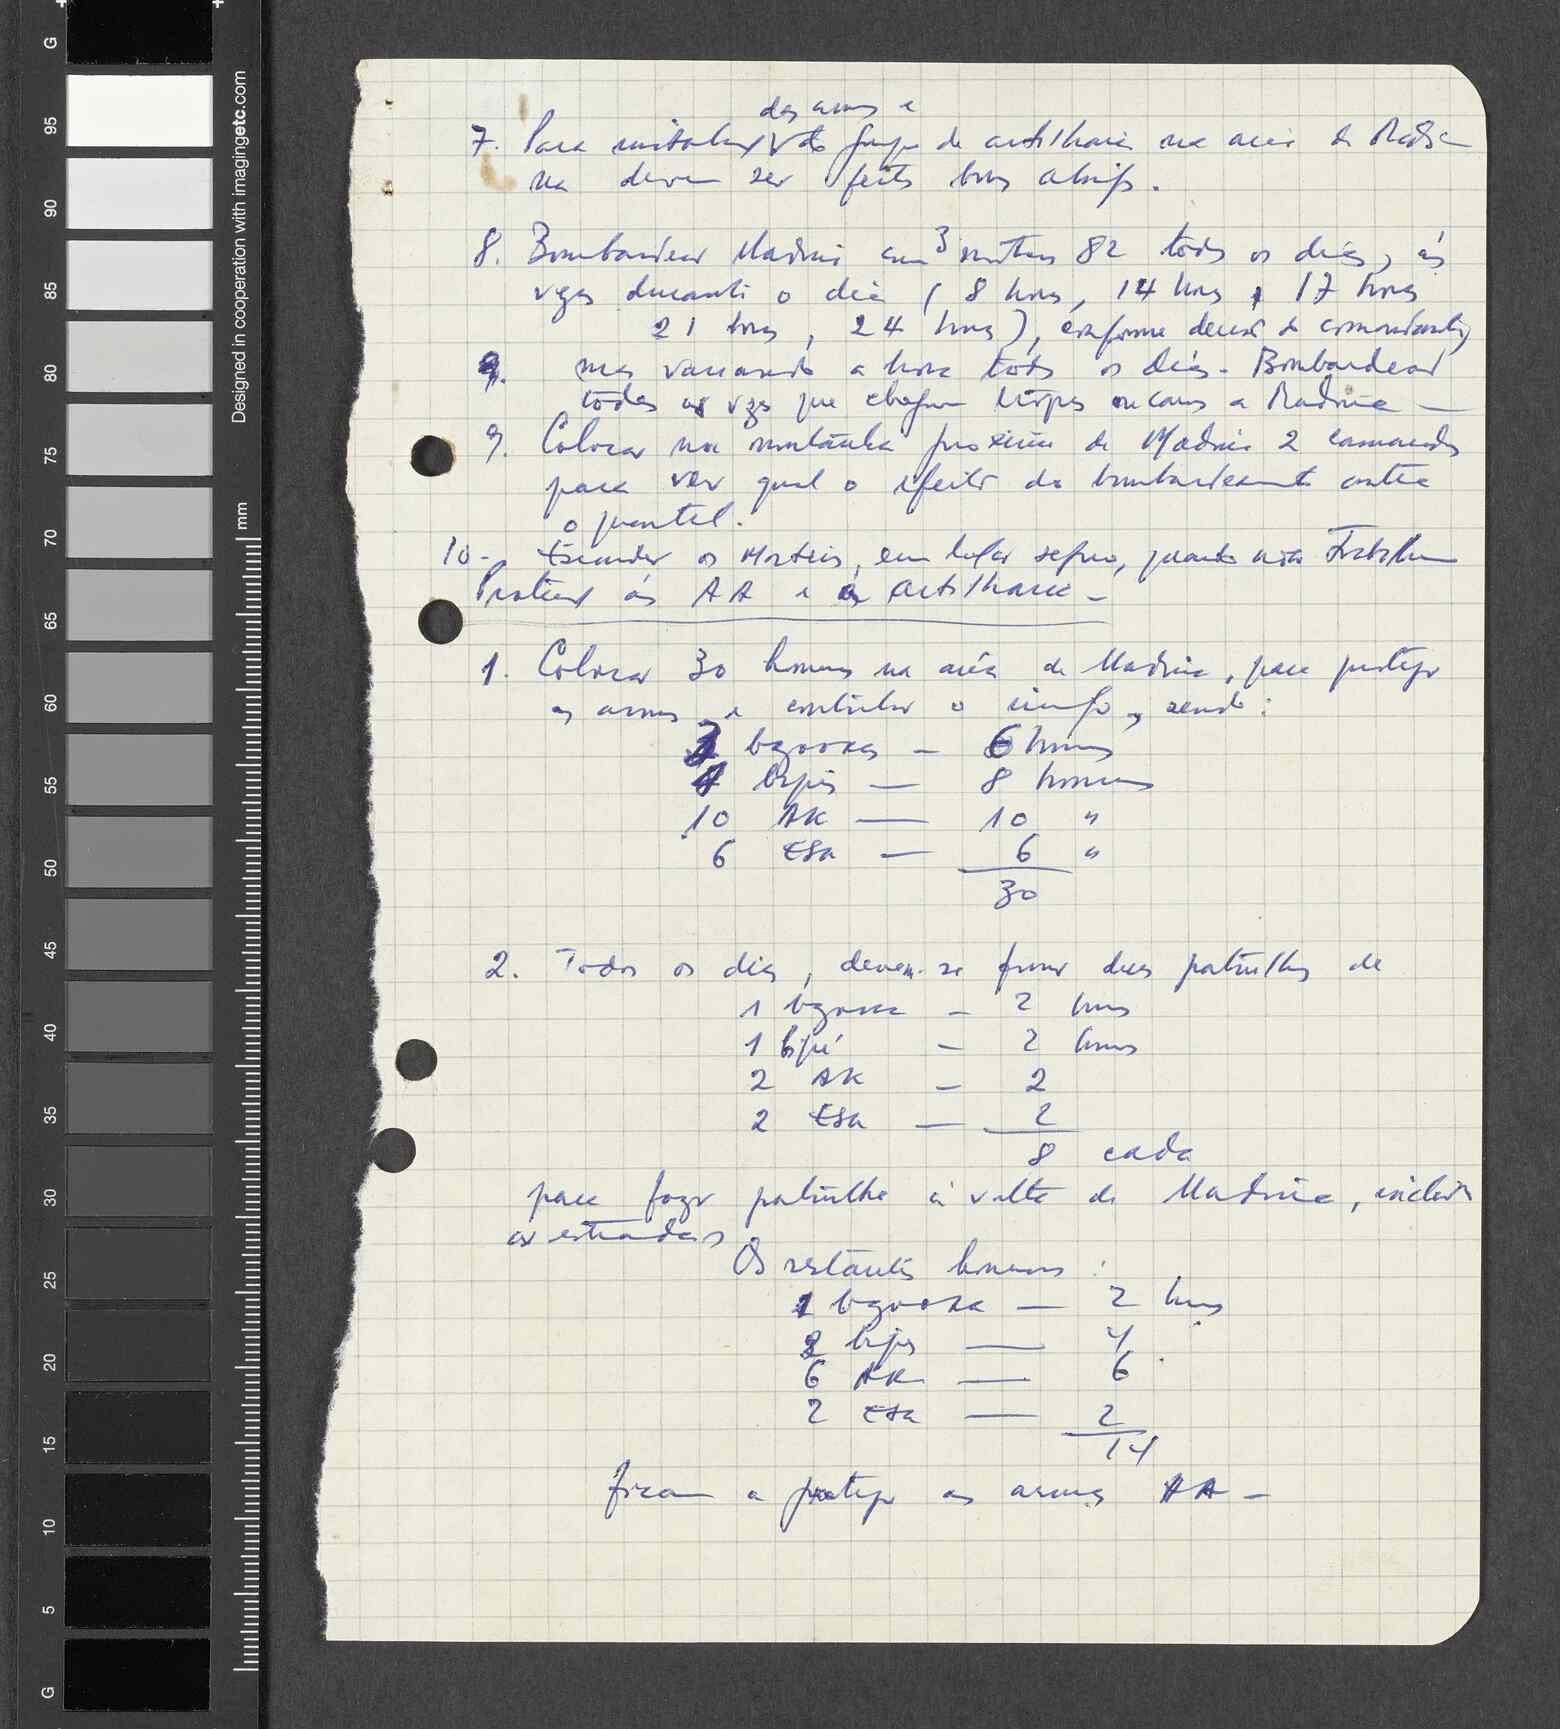 das armas e
7. Para instalar do grupo de artilharia na área de Madi-
na devem ser feitos bons abrigos.
8. Bombardear Madina com 3 morteiros 82 todos os dias, às
vezes durante o dia (8 horas, 14 horas, 17 horas
21 horas, 24 horas), conforme decisão do comandante,
9. mas variando a hora todos os dias. Bombardear
todas as vezes que chegam tropas ou carros a Madina —
9. Colocar na montanha proxima de Madina 2 camaradas
para ver qual o efeito do bombardeamento contra
o quartel.
10- Esconder os Morteiros, em lugar seguro, quando não trabalham
Proteção às AA e à artilharia -
1. Colocar 30 homens na área de Madina, para proteger
as armas e controlar o inimigo, sendo:
3 bazookas — 6 homens
4 bipés — 8 homens
10 AK — 10 "
6 ESA — 6 "
30
2. Todos os dias, devem-se formar duas patrulhas de
1 bazooka — 2 homens
1 bipé — 2 homens
2 AK — 2
2 ESA — 2
8 cada
para fazer patrulha à volta de Madina, incluindo
as estradas
Os restantes homens:
1 bazooka — 2 homens
2 bipés — 4
6 AK — 6
2 ESA — 2
14
ficam a proteger as armas AA -
G
95
90
85
80
75
70
65
60
55
50
45
40
35
30
25
20
15
10
5
G
mm
Designed in cooperation with imagingetc.com